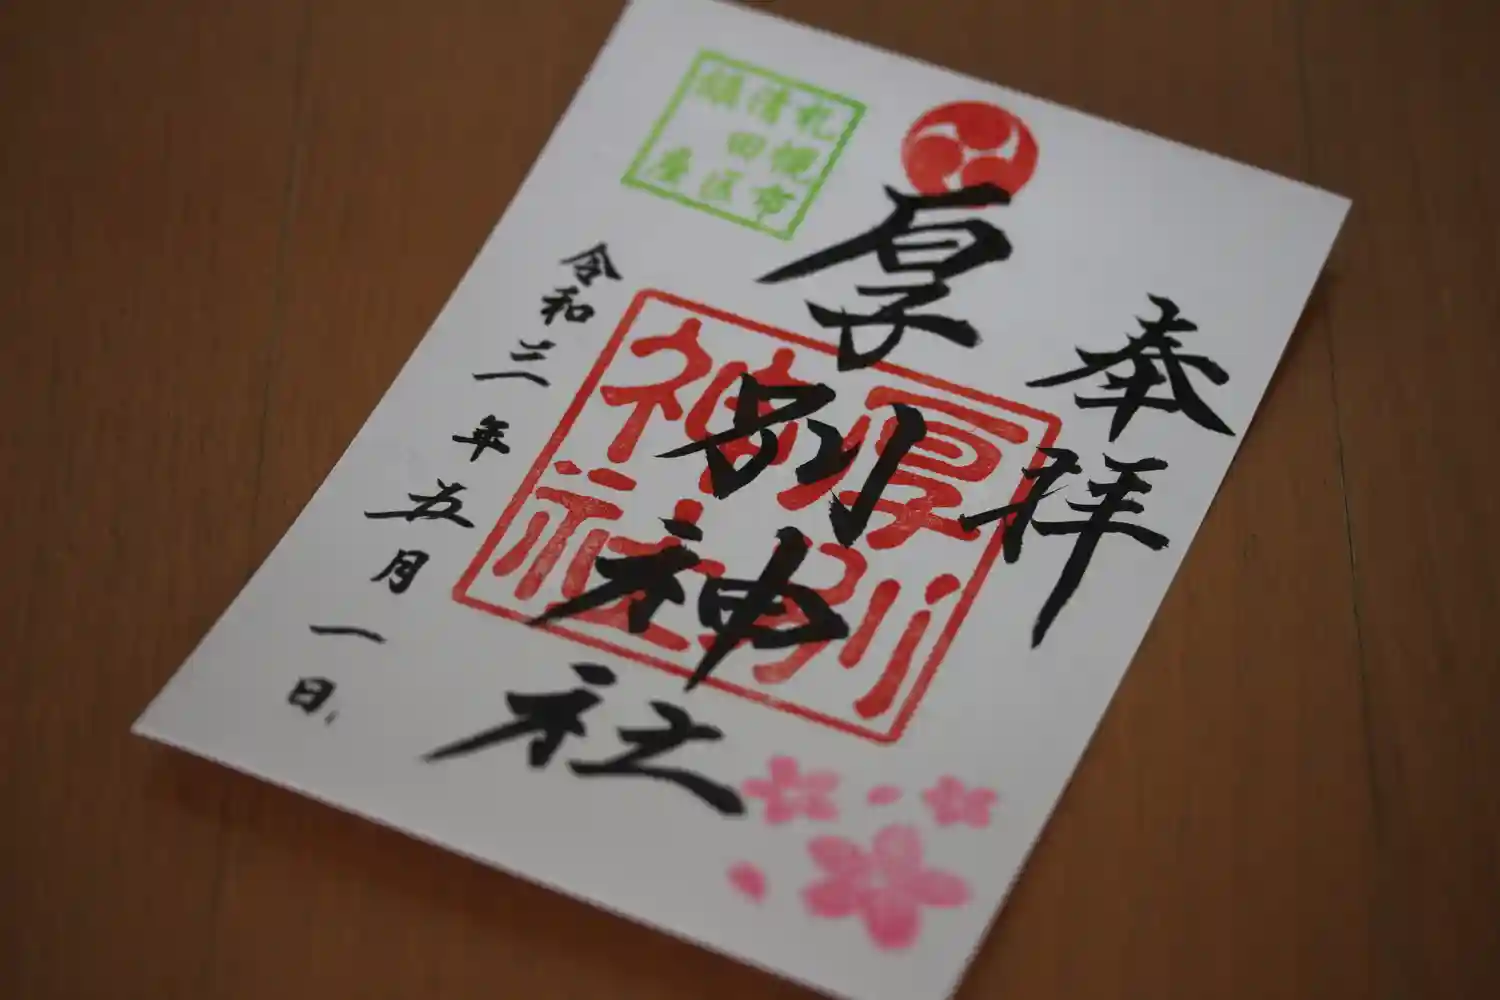 奉拝
厚別神社
厚別
神社
札幌市
清田区
鎮座
令和三年五月一日